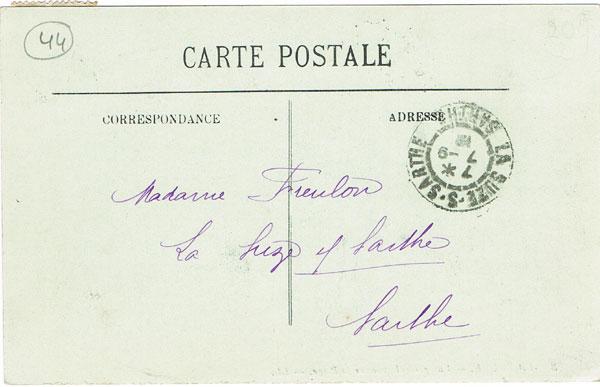 44
CARTE POSTALE
CORRESPONDANCE
ADRESSE
LA SUZE-S-SARTHE SARTHE
7 *
7 -9
Madame
La Suze s/ Sarthe
Sarthe